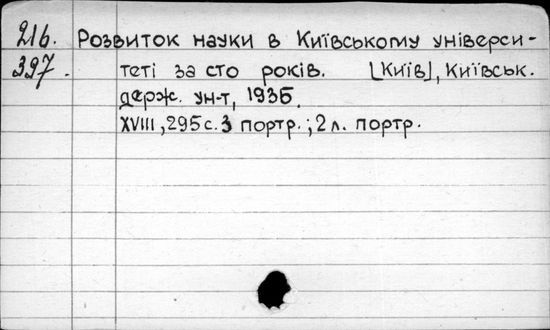 216. Розвиток науки в Київському універси-
397. теті за сто років. [Київ], Київськ.
держ. ун-т, 1935.
XVIII, 295 с. з портр.; 2 л. портр.